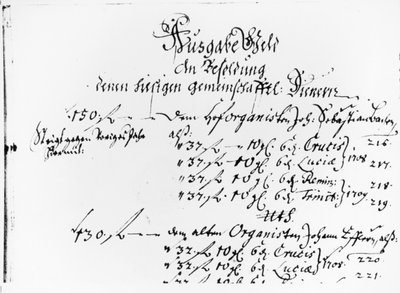 Ausgabe Geld
An Besoldung
denen hiesigen gemeinschafftl: Dienern
150 fl. dem Hoforganisten Joh: Sebastian Bachen,
alß:
37. fl. 10 gl. 6 d. Crucis 216.
37. fl. 10 gl. 6 d. Luciæ 1708 217.
37. fl. 10 gl. 6 d. Remin: 218.
37. fl. 10 gl. 6 d. Trinit: 1709 219.
Uts.
430 fl. dem alten Organisten, Johann Effler, alß:
32. fl. 10 gl. 6 d. Crucis 220.
32. fl. 10 gl. 6 d. Luciæ 1708. 221.